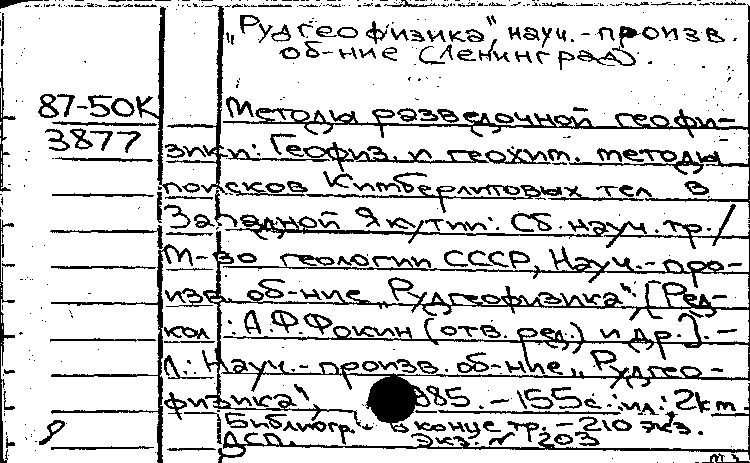 „Рудгеофизика", науч.-произв.
об-ние (Ленинград).
87-50К
3877
Методы разведочной геофи-
зики: Геофиз. и геохим. методы
поисков кимберлитовых тел в
Западной Якутии: Сб. науч. тр. /
М-во геологии СССР, Науч.-про-
изв. об-ние „Рудгеофизика"; [Ред-
кол.: А.Ф.Фокин (отв. ред.) и др.]. -
Л.: Науч.-произв. об-ние „Рудгео-
физика", 985. - 155с.: ил.; 2km.
Библиогр. в конце тр. - 210 экз.
ДСП. Экз. № 203